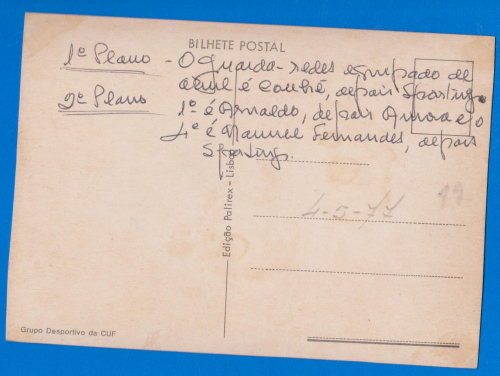 BILHETE POSTAL
1º Plano - O guarda-redes equipado de
azul é Conhé, depois Sporting.
2º Plano 1º é Arnaldo, depois Amora e o
4º é Manuel Fernandes, depois
Sporting.
4-5-77
Edição Palirex - Lisboa
Grupo Desportivo da CUF